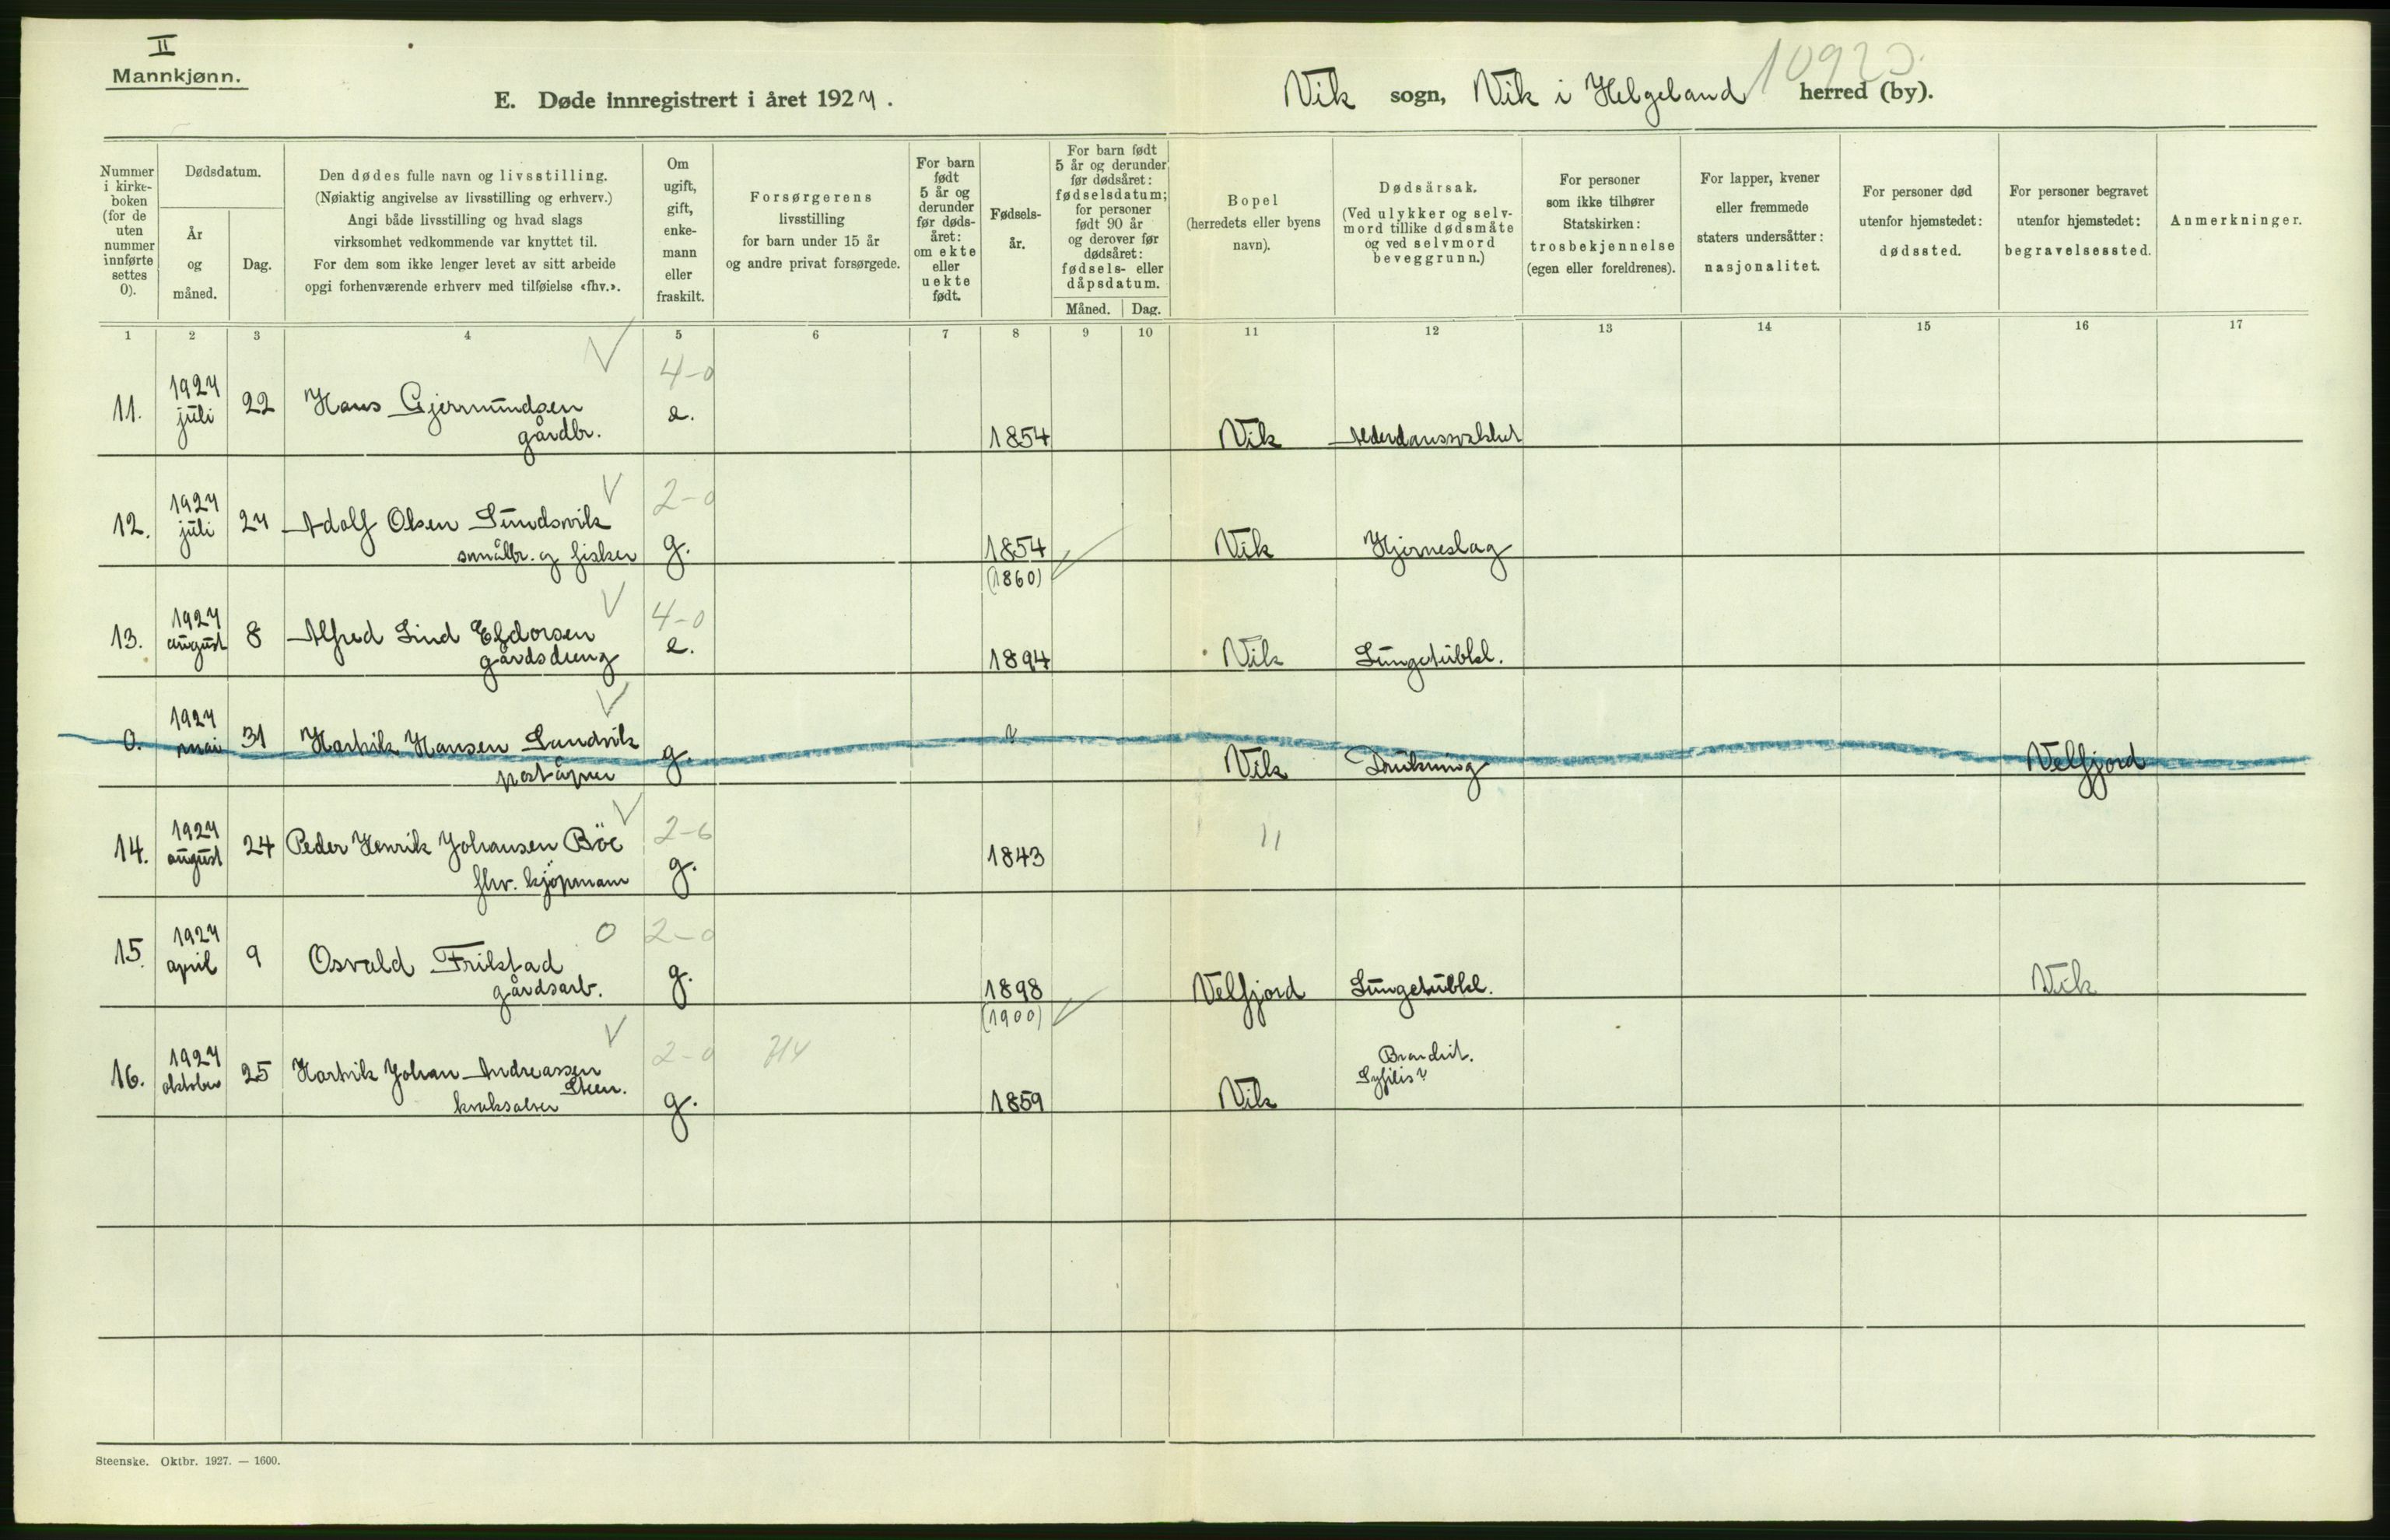 II
Mannkjønn.
E. Døde innregistrert i året 1927.
Vik sogn, Vik i Helgeland herred (by).
Nummer i kirke- boken (for de uten nummer innførte settes 0).
Dødsdatum.
År og måned.
Dag.
Den dødes fulle navn og livsstilling.
(Nøiaktig angivelse av livsstilling og erhverv.)
Angi både livsstilling og hvad slags
virksomhet vedkommende var knyttet til.
For dem som ikke lenger levet av sitt arbeide
opgi forhenværende erhverv med tilføielse «fhv.».
Om ugift, gift, enke- mann eller fraskilt.
Forsørgerens
livsstilling
for barn under 15 år
og andre privat forsørgede.
For barn født 5 år og derunder før døds- året: om ekte eller uekte født.
Fødsels- år.
For barn født 5 år og derunder før dødsåret: fødselsdatum; for personer født 90 år og derover før dødsåret: fødsels- eller dåpsdatum.
Måned. Dag.
Bopel
(herredets eller byens
navn).
Dødsårsak.
(Ved ulykker og selv- mord tillike dødsmåte og ved selvmord beveggrunn.)
For personer
som ikke tilhører
Statskirken:
trosbekjennelse
(egen eller foreldrenes).
For lapper, kvener
eller fremmede
staters undersåtter:
nasjonalitet.
For personer død
utenfor hjemstedet:
dødssted.
For personer begravet
utenfor hjemstedet:
begravelsessted.
Anmerkninger.
1 2 3 4 5 6 7 8 9 10 11 12 13 14 15 16 17
4-0
11. 1927 juli 22 Hans Gjermundsen e.
gårdbr. 1854 Vik Alderdomssvakhet
2-0
12. 1927 juli 27 Adolf Olsen Sundsvik g.
småbr. og fisker 1854 Vik Hjerneslag
(1860)
4-0
13. 1927 august 8 Alfred Lind Eldorsen e.
gårdsdreng 1894 Vik Lungetubkl.
0. 1927 mai 31 Hartvik Hansen Sandvik g. ?
poståpner Vik Drukning Velfjord
2-6
14. 1927 august 24 Peder Henrik Johansen Böe g. 1843 11
fhv. kjöpmann
0 2-0
15. 1927 april 9 Osvald Frilstad g.
gårdsarb. 1898 Velfjord Lungetubkl. Vik
(1900)
2-0 714
16. 1927 oktober 25 Hartvik Johan Andreassen Steen. g.
kvaksalver 1859 Vik
Syfilis?
Steenske. Oktbr. 1927. — 1600.